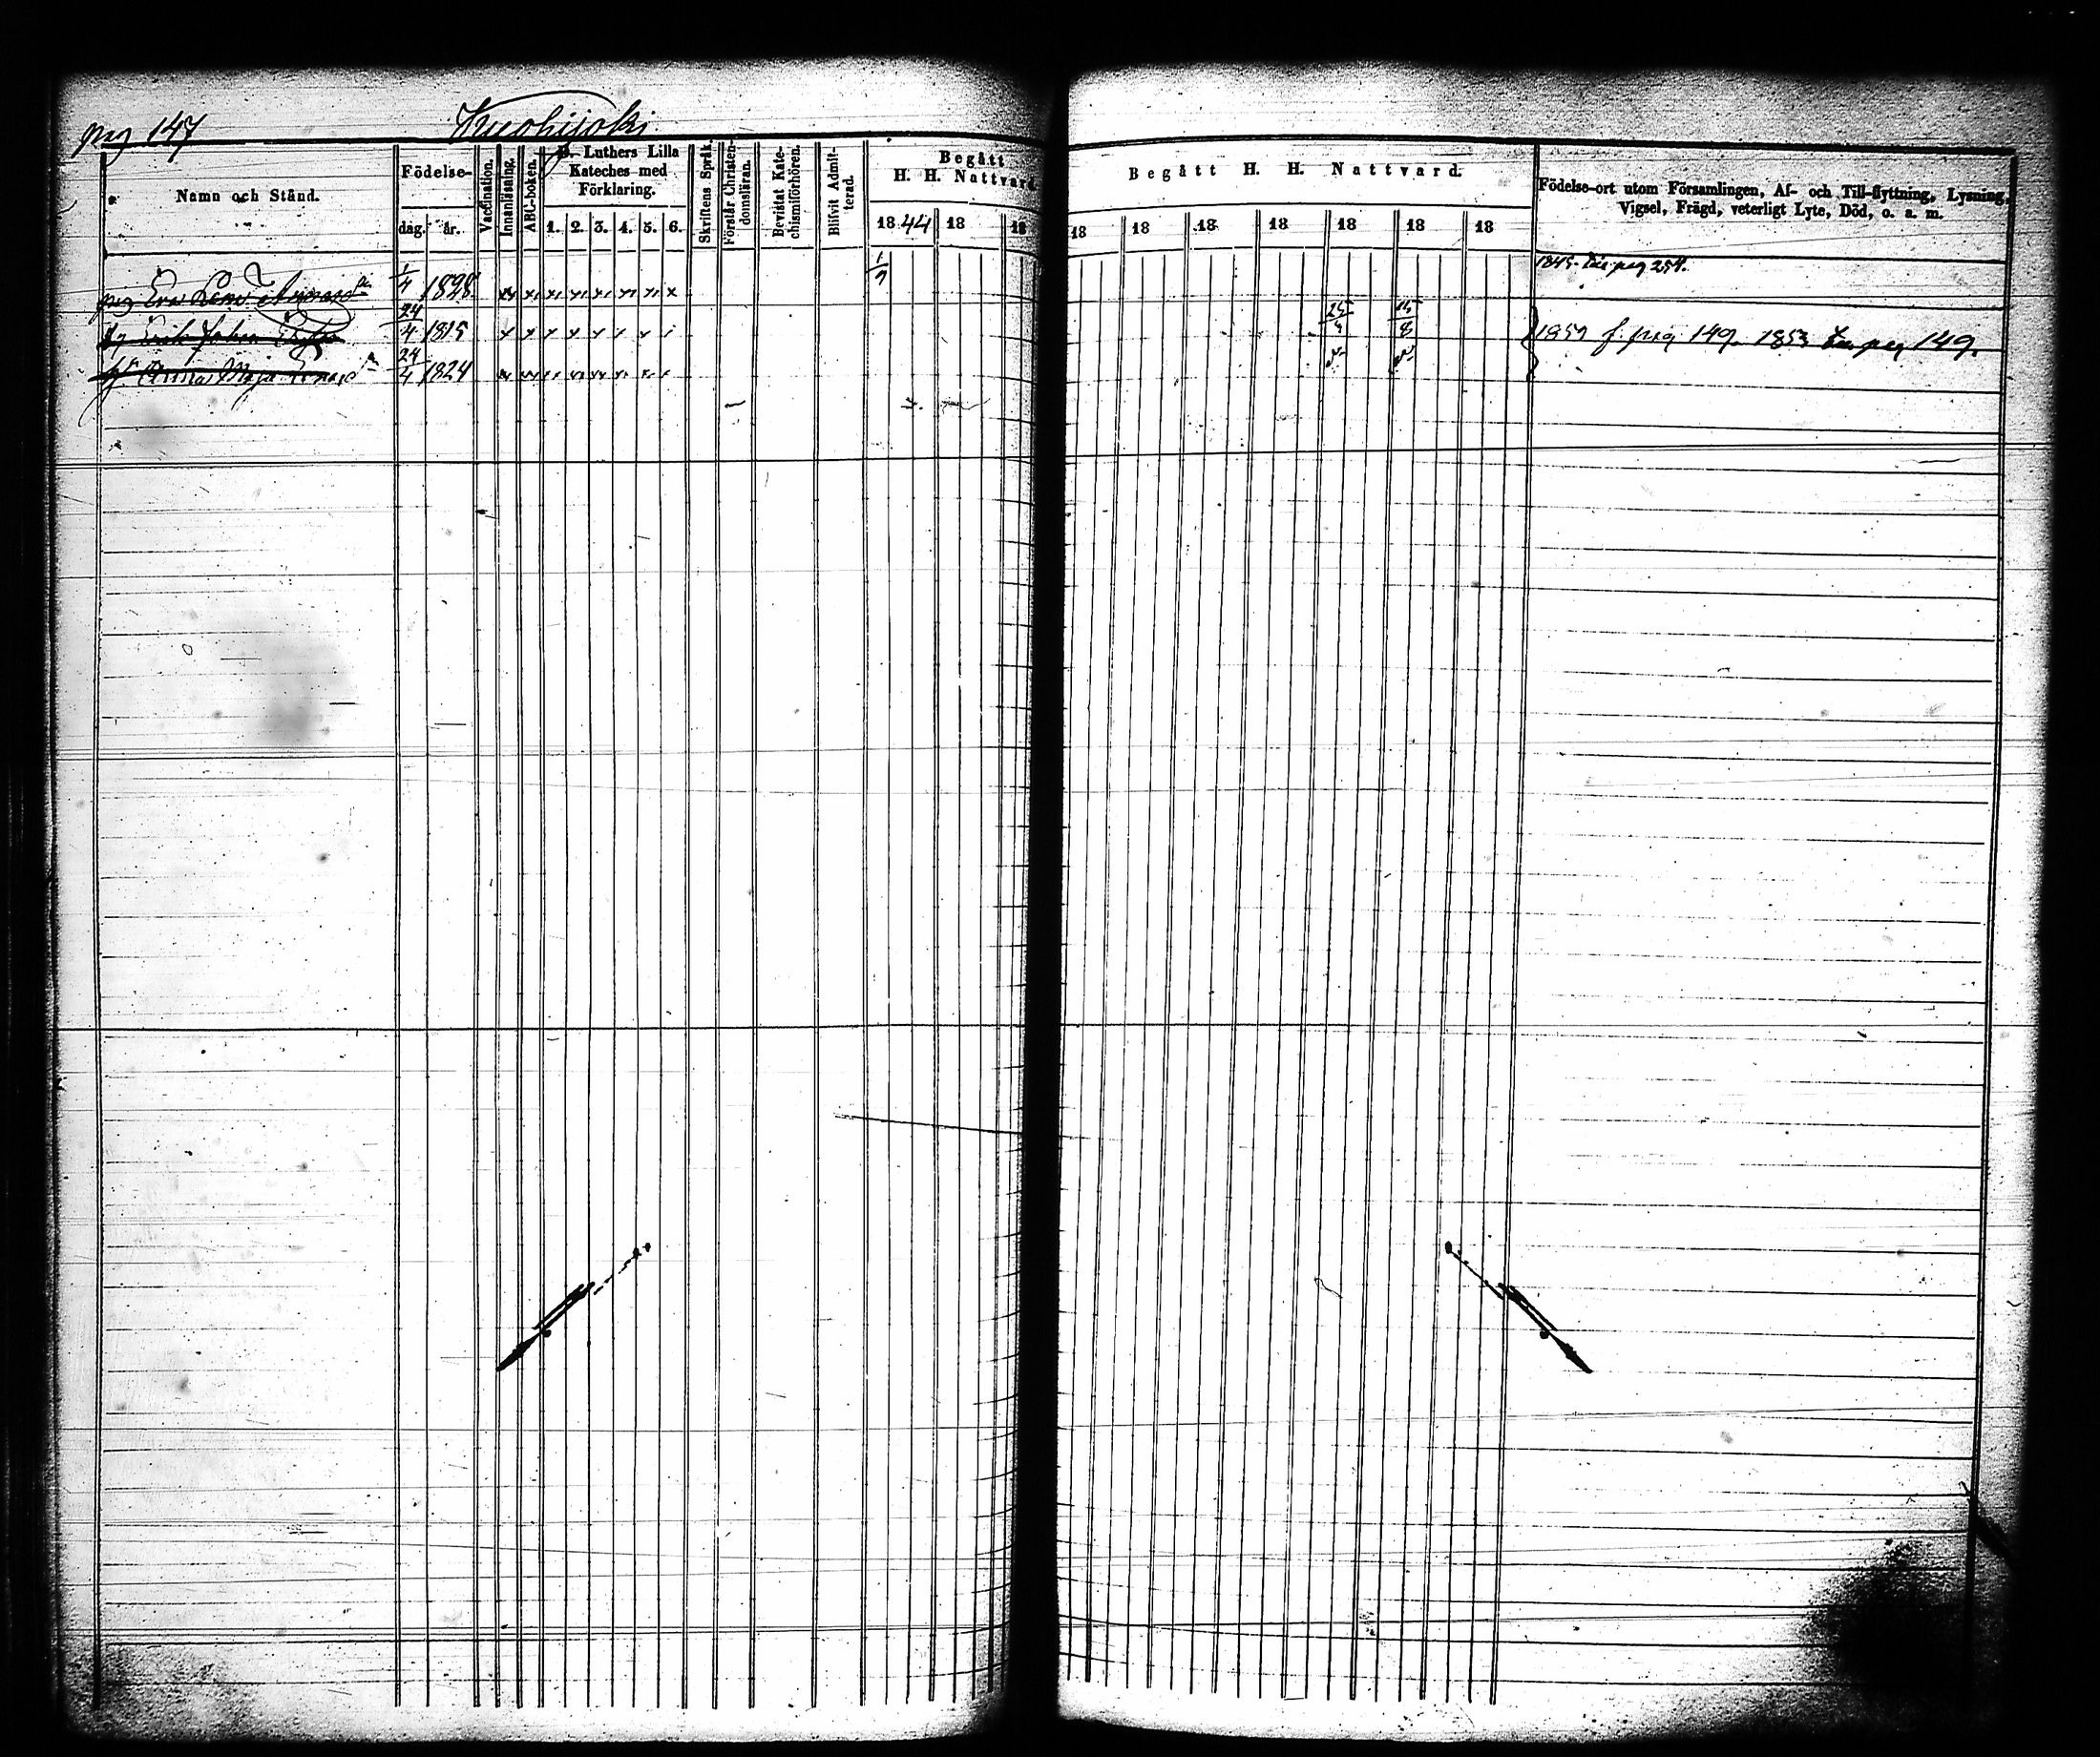 pag 147
Kuohijoki
Namn och Stånd.
Födelse-
dag.
år.
Vaccination.
Innanläsning.
ABC-boken.
D. Luthers Lilla
Kateches med
Förklaring.
1. 2. 3. 4. 5. 6.
Skriftens Språk.
Förstår Christen-
domsläran.
Bevistat Kate-
chismiförhören.
Blifvit Admit-
terad.
Begått
H. H. Nattvard.
1844 18 18
Begått H. H. Nattvard.
18 18 18 18 18 18 18
Födelse-ort utom Församlingen, Af- och Till-flyttning, Lysning,
Vigsel, Frägd, veterligt Lyte, Död, o. s. m.
pig Eva Lena 1/4 1828 x x x x x x x x 1/7 1845 pag 254.
Erik Johan 24/4 1815 x x x x x x x 25/4 15/8 f. pag 149. 1853 pag 149.
Anna Maja 24/4 1824